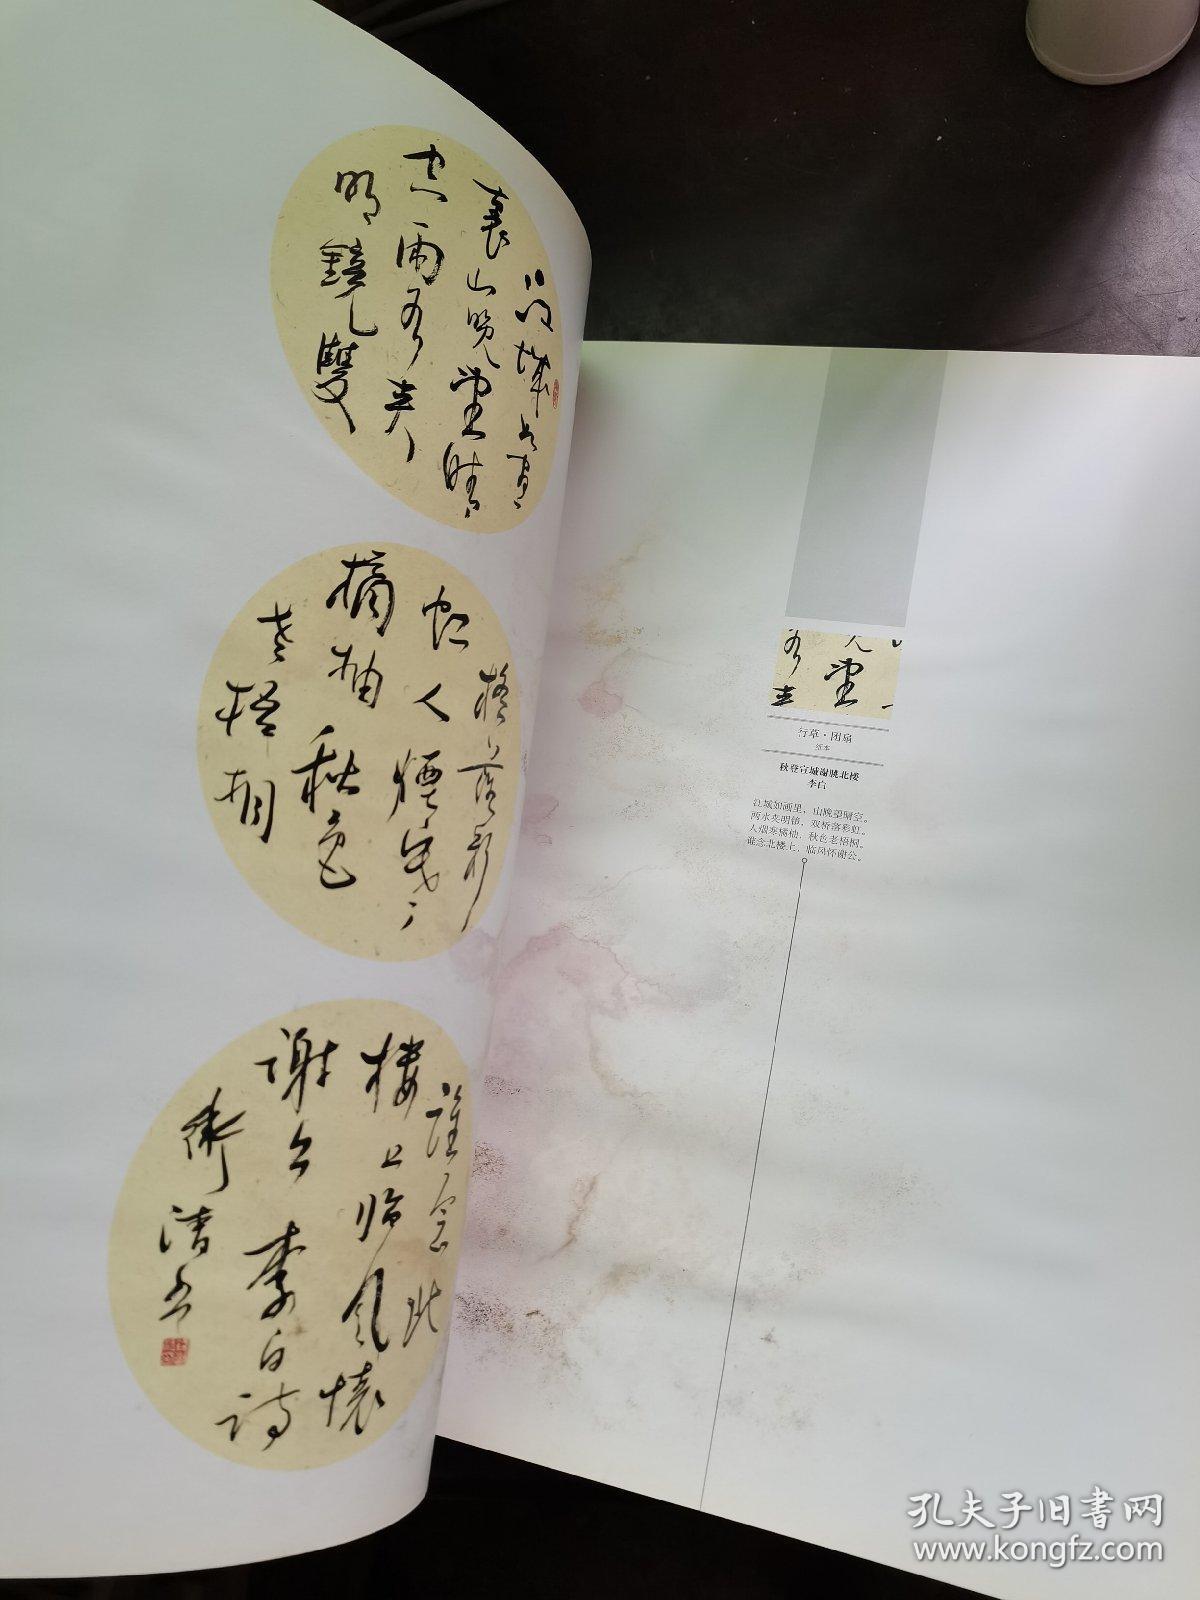 江城如畫
裏山晚望晴
空兩水夾
明鏡雙
橋落彩
虹人煙寒
橘柚秋色
老梧桐
誰念北
樓上臨風懷
謝公李白詩
行草·团扇
纸本
秋登宣城谢朓北楼
李白
江城如画里，山晚望晴空。
两水夹明镜，双桥落彩虹。
人烟寒橘柚，秋色老梧桐。
谁念北楼上，临风怀谢公。
孔夫子旧书网
www.kongfz.com